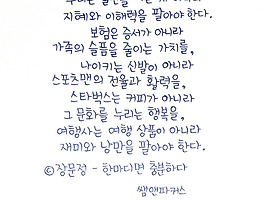 지혜와 이해력을 팔아야 한다.
보험은 증서가 아니라
가족의 슬픔을 줄이는 가치를,
나이키는 신발이 아니라
스포츠맨의 전율과 활력을,
스타벅스는 커피가 아니라
그 문화를 누리는 행복을,
여행사는 여행 상품이 아니라
재미와 낭만을 팔아야 한다.
©장문정 - 한마디면 충분하다
쌤앤파커스